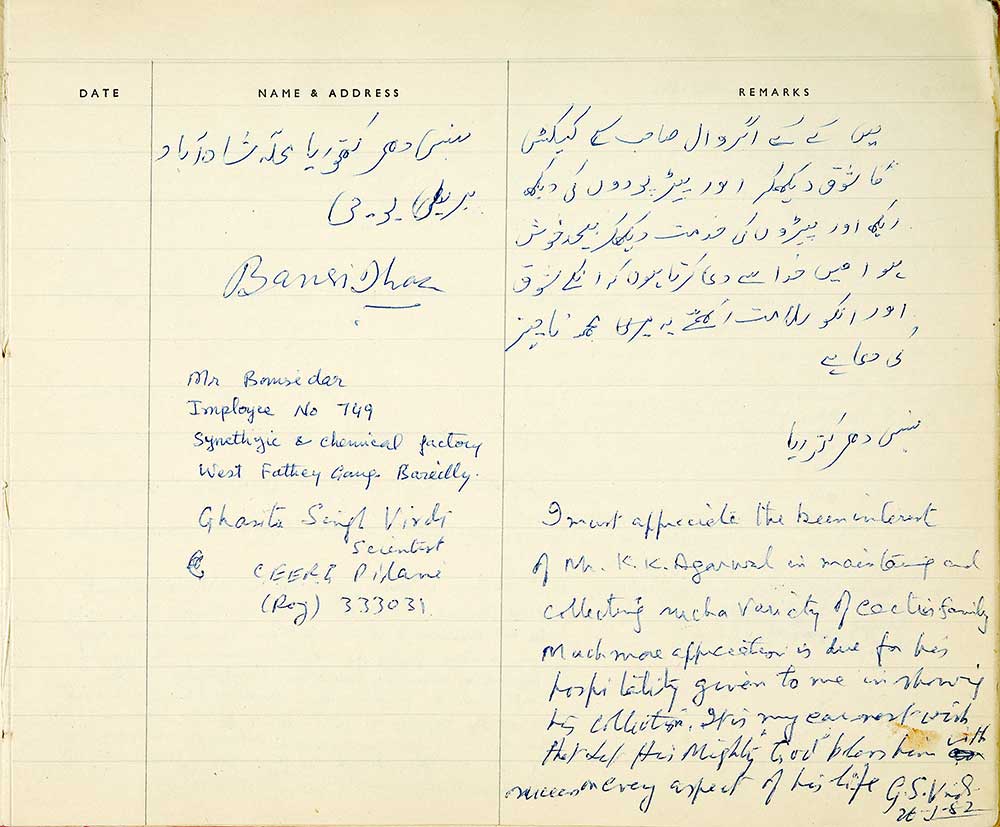 DATE
NAME & ADDRESS
REMARKS
بنسی دھر کتھوریا محلہ شاہ آباد
بریلی یو۔پی
Bansi Dhar
Mr Bonsedar
Imployee No 749
Synethyic & chemical factory
West Fathey Gang Bareilly.
Ghasita Singh Virdi
Scientist
CEERI Pilani
(Raj) 333031.
میں کے کے اگروال صاحب کے کیکٹس
کا شوق دیکھکر اور پیڑ پودوں کی دیکھ
ریکھ اور پیڑوں کی خدمت دیکھکر بیحد خوش
ہوا میں خدا سے دعا کرتا ہوں کہ انکے شوق
اور انکو سلامت رکھے یہ میری مجھ ناچیز
کی دعا ہے
بنسی دھر کتھوریا
I must appreciate the keen interest
of Mr. K.K. Agarwal in maintaing and
collecting such a variety of cactus family
Much more appreciation is due for his
hospitality given to me in showing
his collection. It is my earnest wish
that let His Mighty "God" bless him with
success on every aspect of his life G.S. Virdi